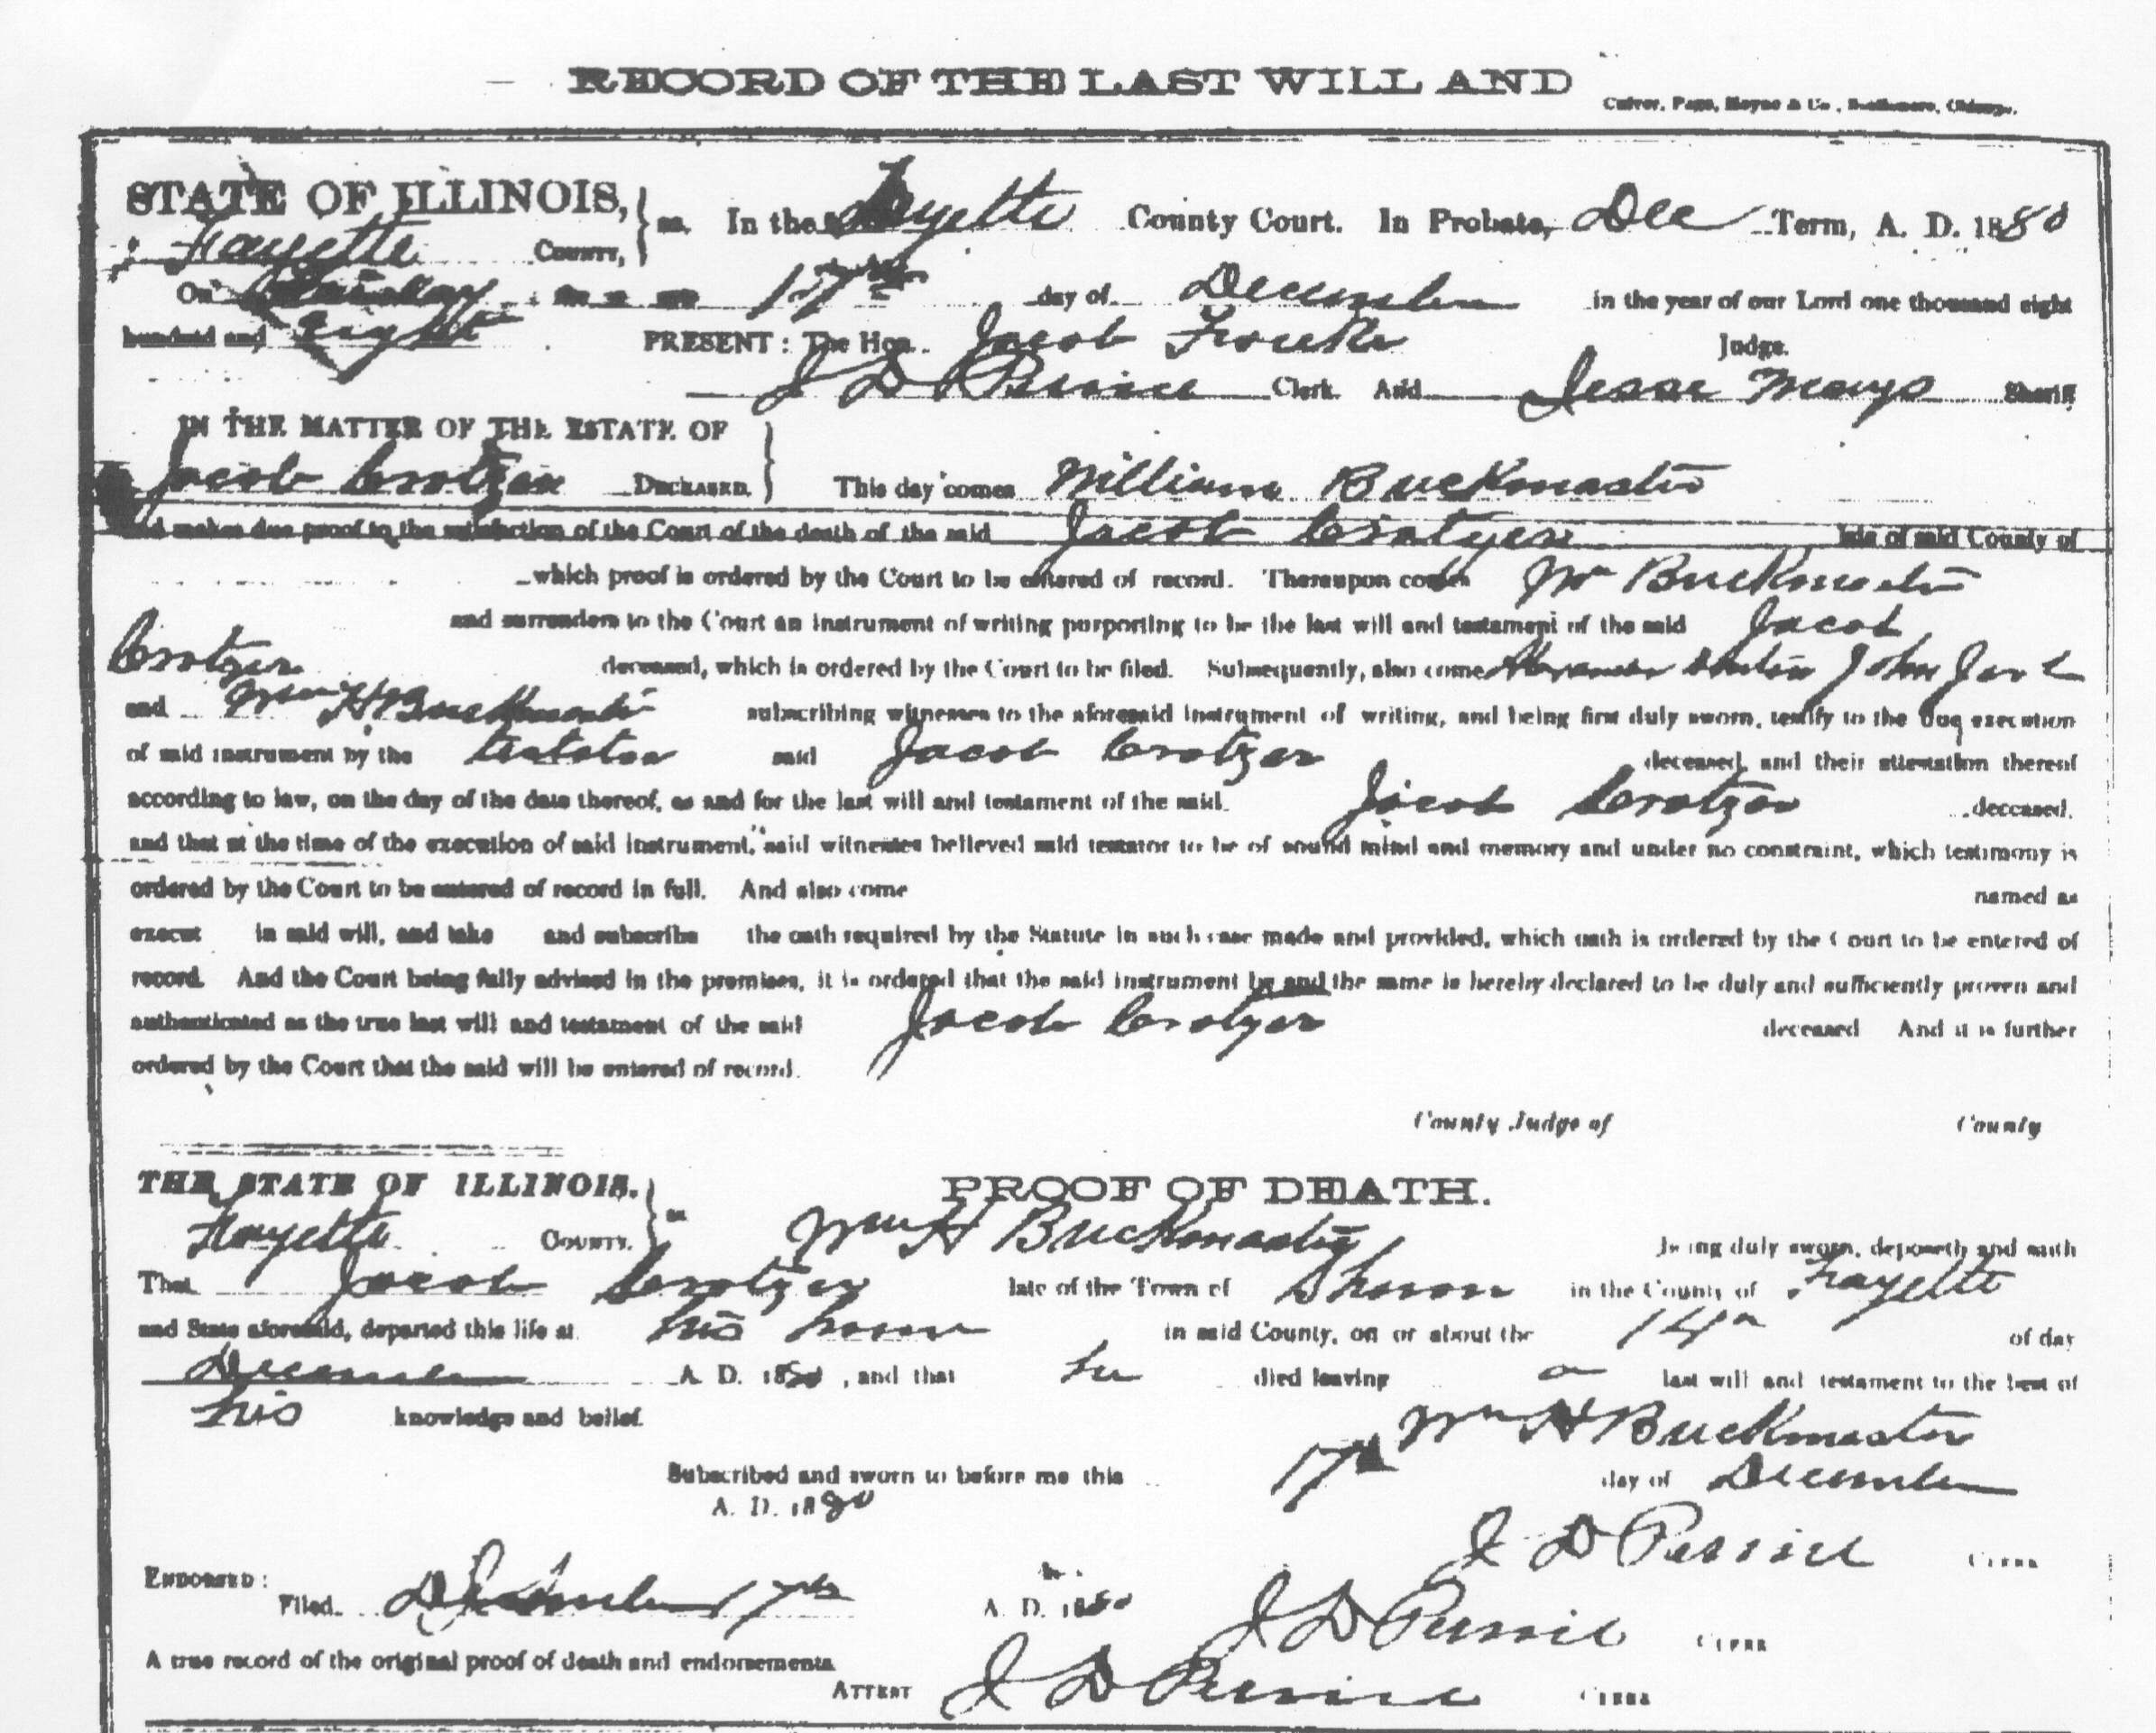 RECORD OF THE LAST WILL AND
Culver, Page, Hoyne & Co.,
STATE OF ILLINOIS, } ss. In the Fayette County Court. In Probate, Dec Term, A. D. 1880
Fayette COUNTY,
On 17th day of December in the year of our Lord one thousand eight
hundred and Eighty PRESENT: The Hon. Jacob Fouke Judge.
J D Perrine Clerk. And Jesse Mays Sheriff
IN THE MATTER OF THE ESTATE OF
Jacob Crotzer DECEASED. } This day comes William Buckmaster
and makes due proof to the satisfaction of the Court of the death of the said Jacob Crotzer late of said County of
which proof is ordered by the Court to be entered of record. Thereupon comes Wm Buckmaster
and surrenders to the Court an instrument of writing purporting to be the last will and testament of the said Jacob
Crotzer deceased, which is ordered by the Court to be filed. Subsequently, also come Alexander John
and Wm H Buckmaster subscribing witnesses to the aforesaid instrument of writing, and being first duly sworn, testify to the due execution
of said instrument by the testator said Jacob Crotzer deceased, and their attestation thereof
according to law, on the day of the date thereof, as and for the last will and testament of the said Jacob Crotzer deceased,
and that at the time of the execution of said instrument, said witnesses believed said testator to be of sound mind and memory and under no constraint, which testimony is
ordered by the Court to be entered of record in full. And also come named as
execut in said will, and take and subscribe the oath required by the Statute in such case made and provided, which oath is ordered by the Court to be entered of
record. And the Court being fully advised in the premises, it is ordered that the said instrument be and the same is hereby declared to be duly and sufficiently proven and
authenticated as the true last will and testament of the said Jacob Crotzer deceased And it is further
ordered by the Court that the said will be entered of record.
County Judge of County
THE STATE OF ILLINOIS, } ss. PROOF OF DEATH.
Fayette COUNTY. Wm H Buckmaster being duly sworn, deposeth and saith
That Jacob Crotzer late of the Town of Sharon in the County of Fayette
and State aforesaid, departed this life at his home in said County, on or about the 14th of day
December A. D. 1880, and that he died leaving a last will and testament to the best of
his knowledge and belief.
Wm H Buckmaster
Subscribed and sworn to before me this 17th day of December
A. D. 1880
J D Perrine CLERK
ENDORSED:
Filed December 17th A. D. 1880 J D Perrine CLERK
A true record of the original proof of death and endorsements.
ATTEST J D Perrine CLERK